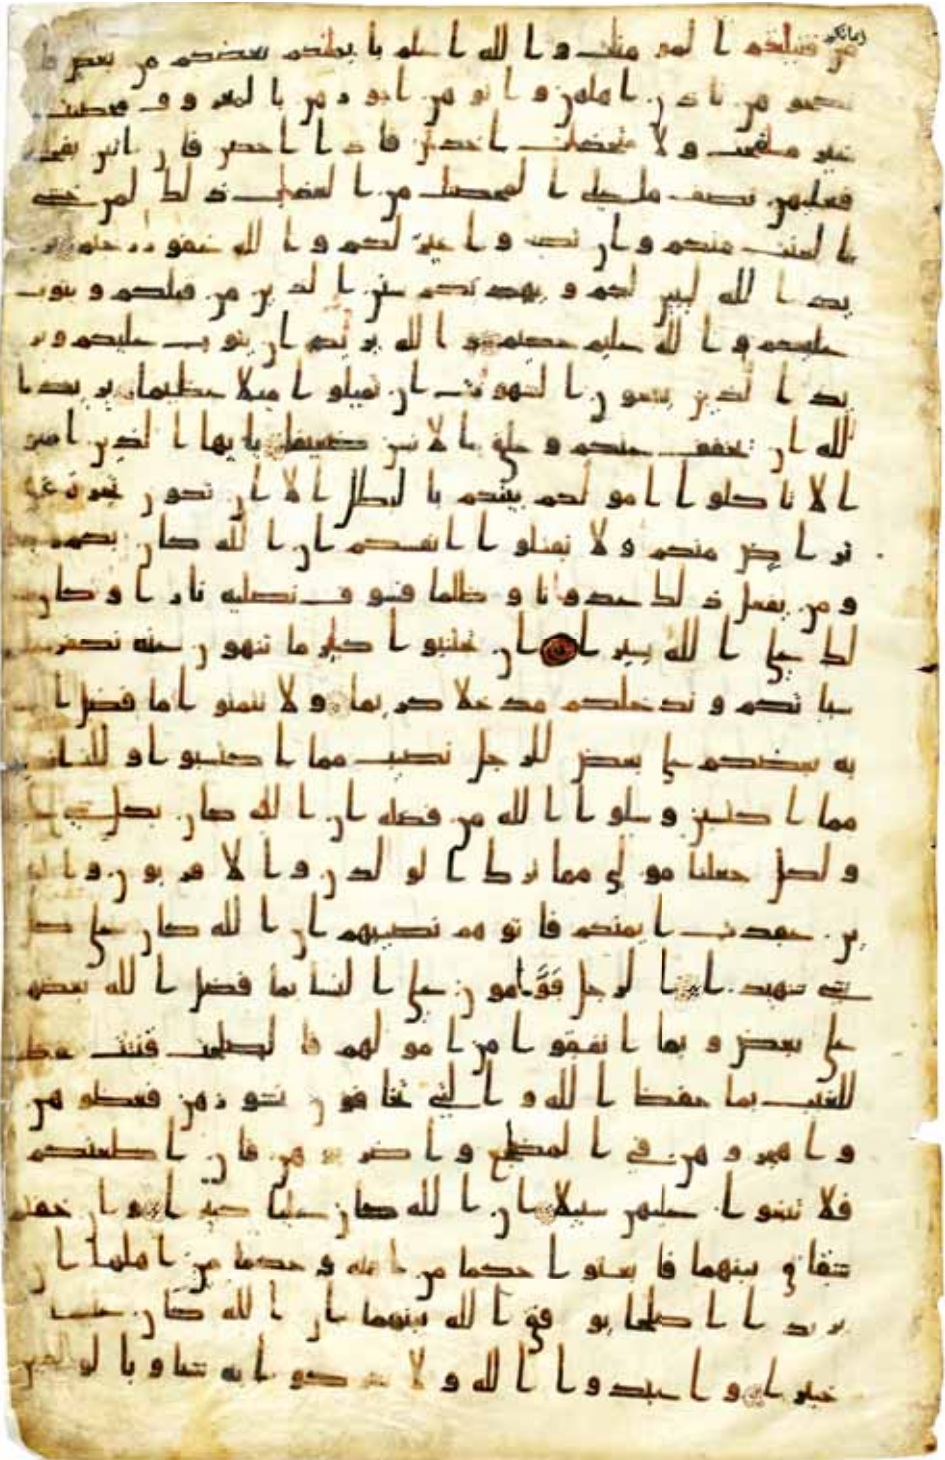 من فتيتكم المومنت والله اعلم بايمنكم بعضكم من بعض فا
نكحوهن باذن اهلهن واتوهن اجورهن بالمعروف محصنت
غير مسفحت ولا متخذات اخدان فاذا احصن فان اتين بفحشة
فعليهن نصف ما على المحصنت من العذاب ذلك لمن خشى
العنت منكم وان تصبروا خير لكم والله غفور رحيم ير
يد الله ليبين لكم ويهديكم سنن الذين من قبلكم ويتوب
عليكم والله عليم حكيم والله يريد ان يتوب عليكم وير
يد الذين يتبعون الشهوت ان تميلوا ميلا عظيما يريد ا
لله ان يخفف عنكم وخلق الانسن ضعيفا يايها الذين امنو
ا لا تاكلوا امولكم بينكم بالبطل الا ان تكون تجرة عن
تراض منكم ولا تقتلوا انفسكم ان الله كان بكم
ومن يفعل ذلك عدوانا وظلما فسوف نصليه نارا وكان
لك على الله يسيرا ان تجتنبوا كبير ما تنهون عنه نكفر
سياتكم وندخلكم مدخلا كريما ولا تتمنوا ما فضل ا
به بعضكم على بعض للرجل نصيب مما اكتسبوا وللنسا
مما اكتسبن وسلوا الله من فضله ان الله كان بكل شى
ولكل جعلنا مولى مما ترك الولدن والاقربون والذ
ين عقدت ايمنكم فاتوهم نصيبهم ان الله كان على كل
شى شهيدا الرجل قَوَّامون على النسا بما فضل الله بعضهم
على بعض وبما انفقوا من امولهم فالصلحت قنتت حفظت
للغيب بما حفظ الله والتى تخافون نشوزهن فعظوهن
واهجروهن فى المضجع واضربوهن فان اطعنكم
فلا تبغوا عليهن سبيلا ان الله كان عليا كبيرا وان خفتم
شقاق بينهما فابعثوا حكما من اهله وحكما من اهلها ان
يريدا اصلحا يوفق الله بينهما ان الله كان عليما
خبيرا واعبدوا الله ولا تشركوا به شيا وبالولدين